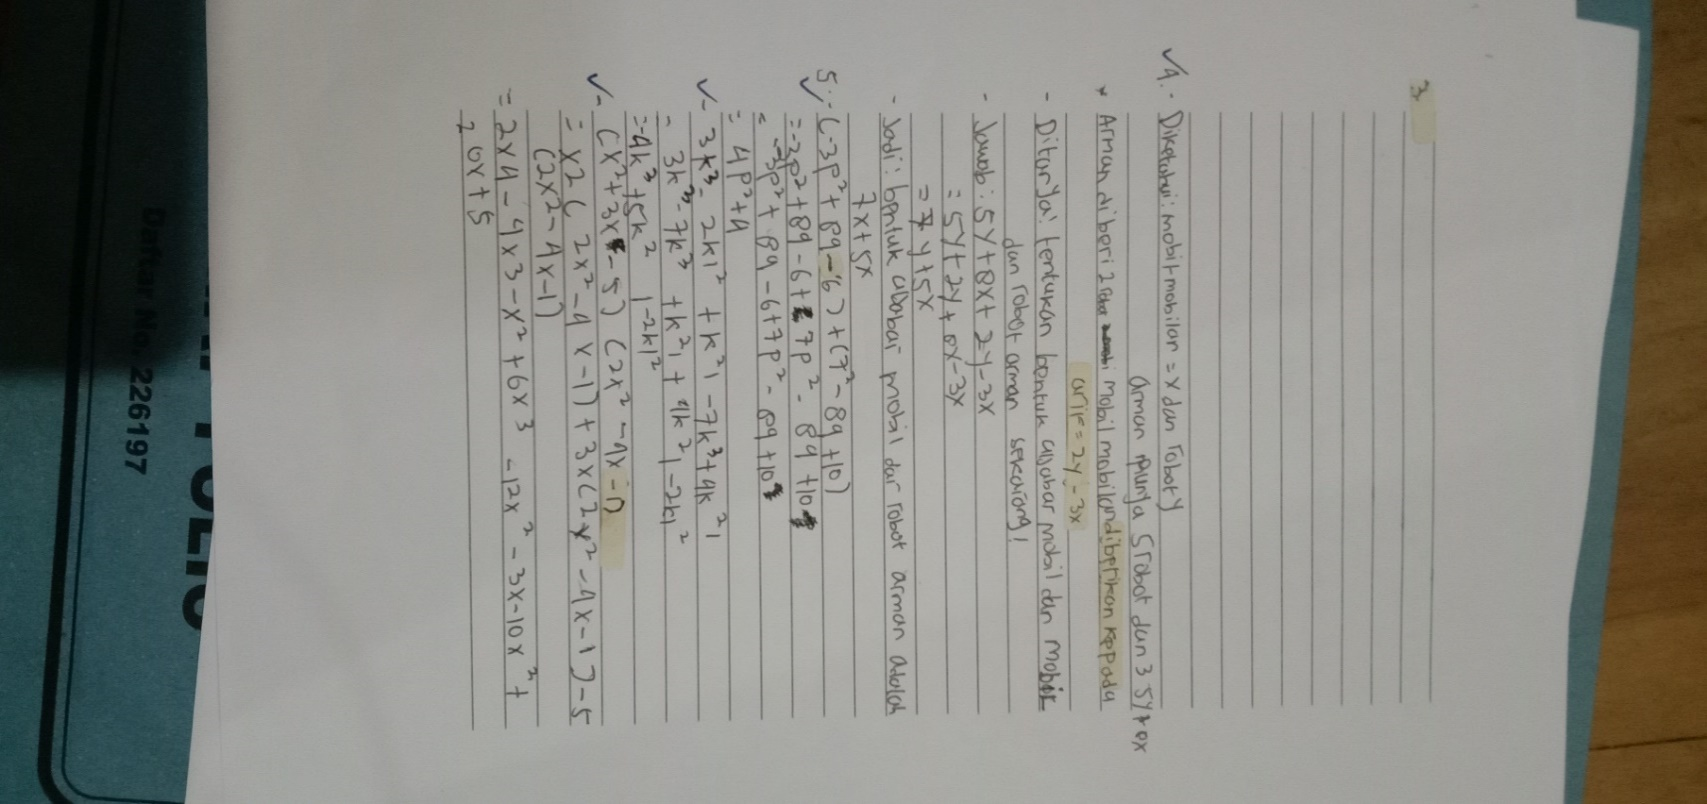 3.
4. - Diketahui: mobil-mobilan = x dan robot y
arman punya 5 robot dan 3 5y + 8x
* Arman diberi 2 mobil mobilan diberikan kepada
arif = 2y - 3x
- Ditanya! tentukan bentuk aljabar mobil dan mobil
dan robot arman sekarang!
- Jawab : 5y + 8x + 2y - 3x
= 5y + 2y + 8x - 3x
= 7y + 5x
- Jadi : bentuk aljabar mobil dar robot arman adalah
7x + 5x
5. - (-3p² + 8q - 6) + (7² - 8q + 10)
= -3p² + 8q - 6 + 7p² - 8q + 10
= -3p² + 8q - 6 + 7p² - 8q + 10
= 4p² + 4
- 3k³ - 2k1² + k²1 - 7k³ + 4k²1
- 3k³ - 7k³ + k²1 + 4k²1 - 2k1²
= -4k³ + 5k²1 - 2k1²
- (x² + 3x - 5) (2x² - 4x - 1)
= x2 ( 2x² - 4x - 1) + 3x (2x² - 4x - 1) - 5
(2x2 - 4x - 1)
= 2x4 - 4x3 - x² + 6x3 - 12x² - 3x - 10x² +
20x + 5
Daftar No. 226197